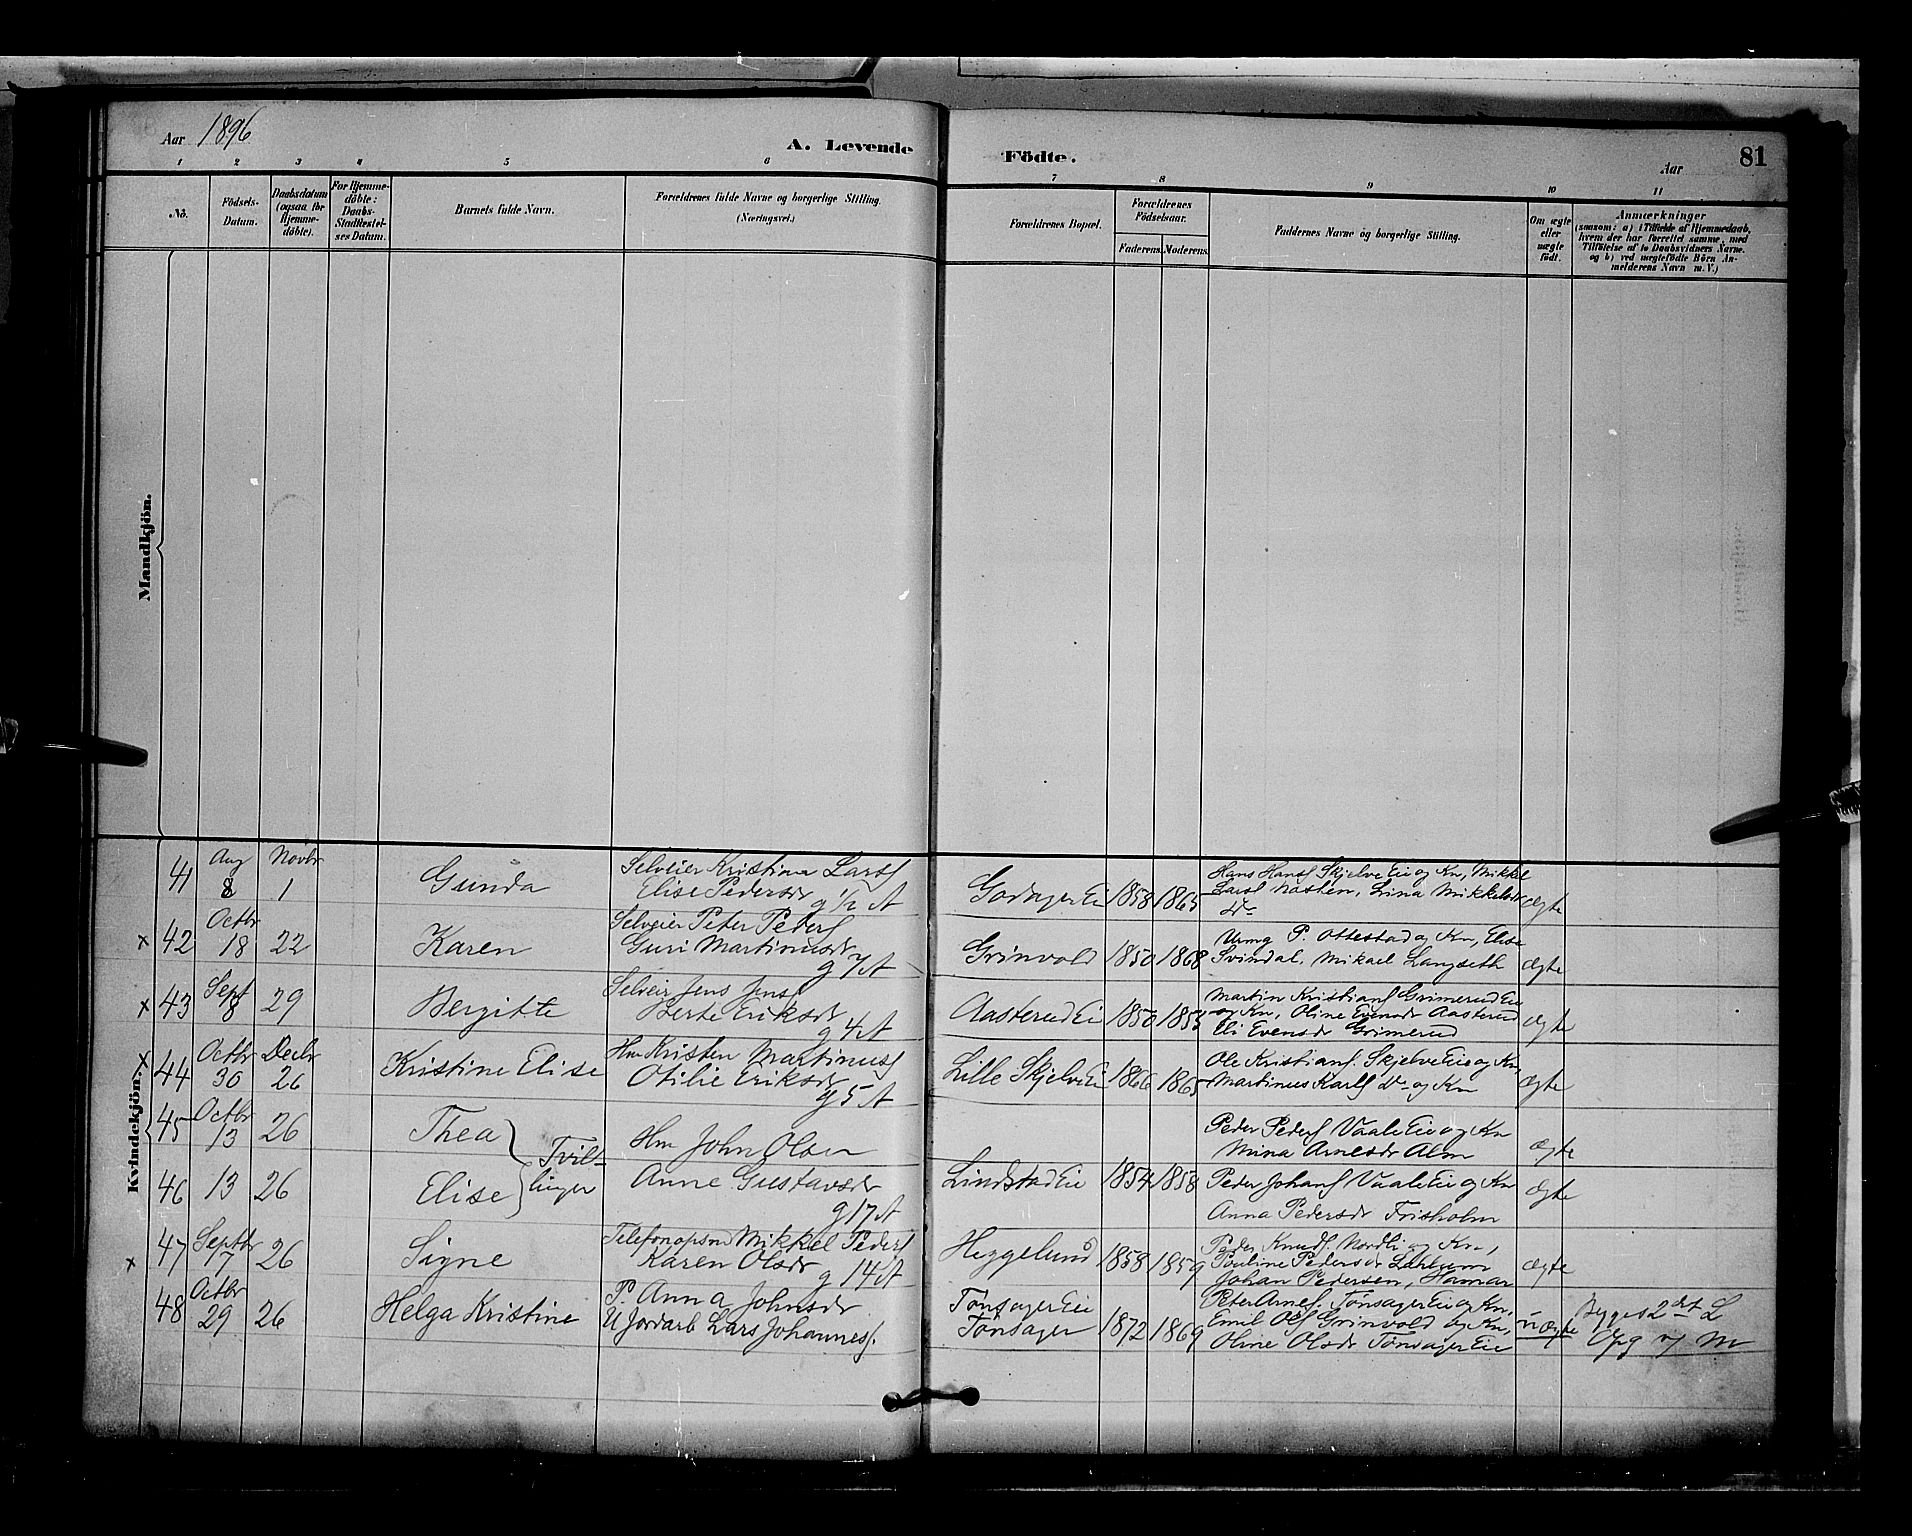 Aar 1896
A. Levende Födte.
Aar
81
1 2 3 4 5 6 7 8 9 10 11
No.
Födsels-
Datum.
Daabsdatum
(ogsaa for
Hjemme-
döbte).
For Hjemme-
döbte:
Daabs-
Stadfæstel-
ses Datum.
Barnets fulde Navn.
Forældrenes fulde Navne og borgerlige Stilling.
(Næringsvei.)
Forældrenes Bopæl.
Forældrenes
Födselsaar.
Faderens. Moderens.
Faddernes Navne og borgerlige Stilling.
Om ægte
eller
uægte
födt.
Anmærkninger
(saasom: a) i Tilfælde af Hjemmedaab,
hvem der har forrettet samme, med
Tilföielse af to Daabsvidners Navne.
og b) ved uægtefödte Börn An-
melderens Navn m. V.)
Mandkjön.
Kvindekjön.
41 Aug 8 Novbr 1 Gunda
Selveier Kristian Larss
Elise Pedersdr g 1/2 A
Godager Ei 1858 1865
Hans Hanss Skjelve Eie og Kn, Mikkel
Larss Nasten, Lina Mikkelsdr
Do
ægte
x 42 Octbr 18 22 Karen
Selveier Peter Peders
Guri Martinusdr
g 7 A
Grinvold 1850 1868
Urmg P. Ottestad og Kn, Elise
Svindal, Mikael Langseth
ægte
x 43 Sept 8 29 Bergitte
Selveir Jens Jens
Berte Eriksdr
g 4 A
Aasterud Ei 1850 1855
Martin Kristians Grimerud Eie
og Kn, Oline Evensdr Aasterud
Eli Evensdr Grimerud
ægte
x 44 Octbr 30 Decbr 26 Kristine Elise
Hm Kristen Martinuss
Otilie Eriksdr
g 5 A
Lille Skjelve Ei 1866 1865
Ole Kristians. Skjelve Eie og Kn,
Martinus Karls Do og Kn
ægte
45 Octbr 13 26 Thea
Tvil-
linger
Hm John Olsen
Peder Peders Vaale Eie og Kn
Mina Arnesdr Alm
ægte
46 13 26 Elise
Anne Gustavsdr
g 17 A
Lindstad Eie 1854 1858
Peder Johans Vaale Eie og Kn
Anna Pedersdr Frisholm
ægte
x 47 Septbr 17 26 Signe
Telefonopsmd Mikkel Peders
Karen Olsdr
g 14 A
Heggelund 1858 1859
Peder Knuds. Nordli og Kn,
Pauline Pedersdr
Johan Pedersen, Hamar
ægte
48 Octbr 29 26 Helga Kristine
P. Anna Johnsdr
U Jordarb Lars Johanness.
Tönsager Eie
Tönsager
1872 1869
Peter Arnes. Tönsager Eie og Kn,
Emil Ols Grinvold og Kn,
Oline Olsdr Tönsager Eie
uægte
Begges 2det L
Opg v/ M